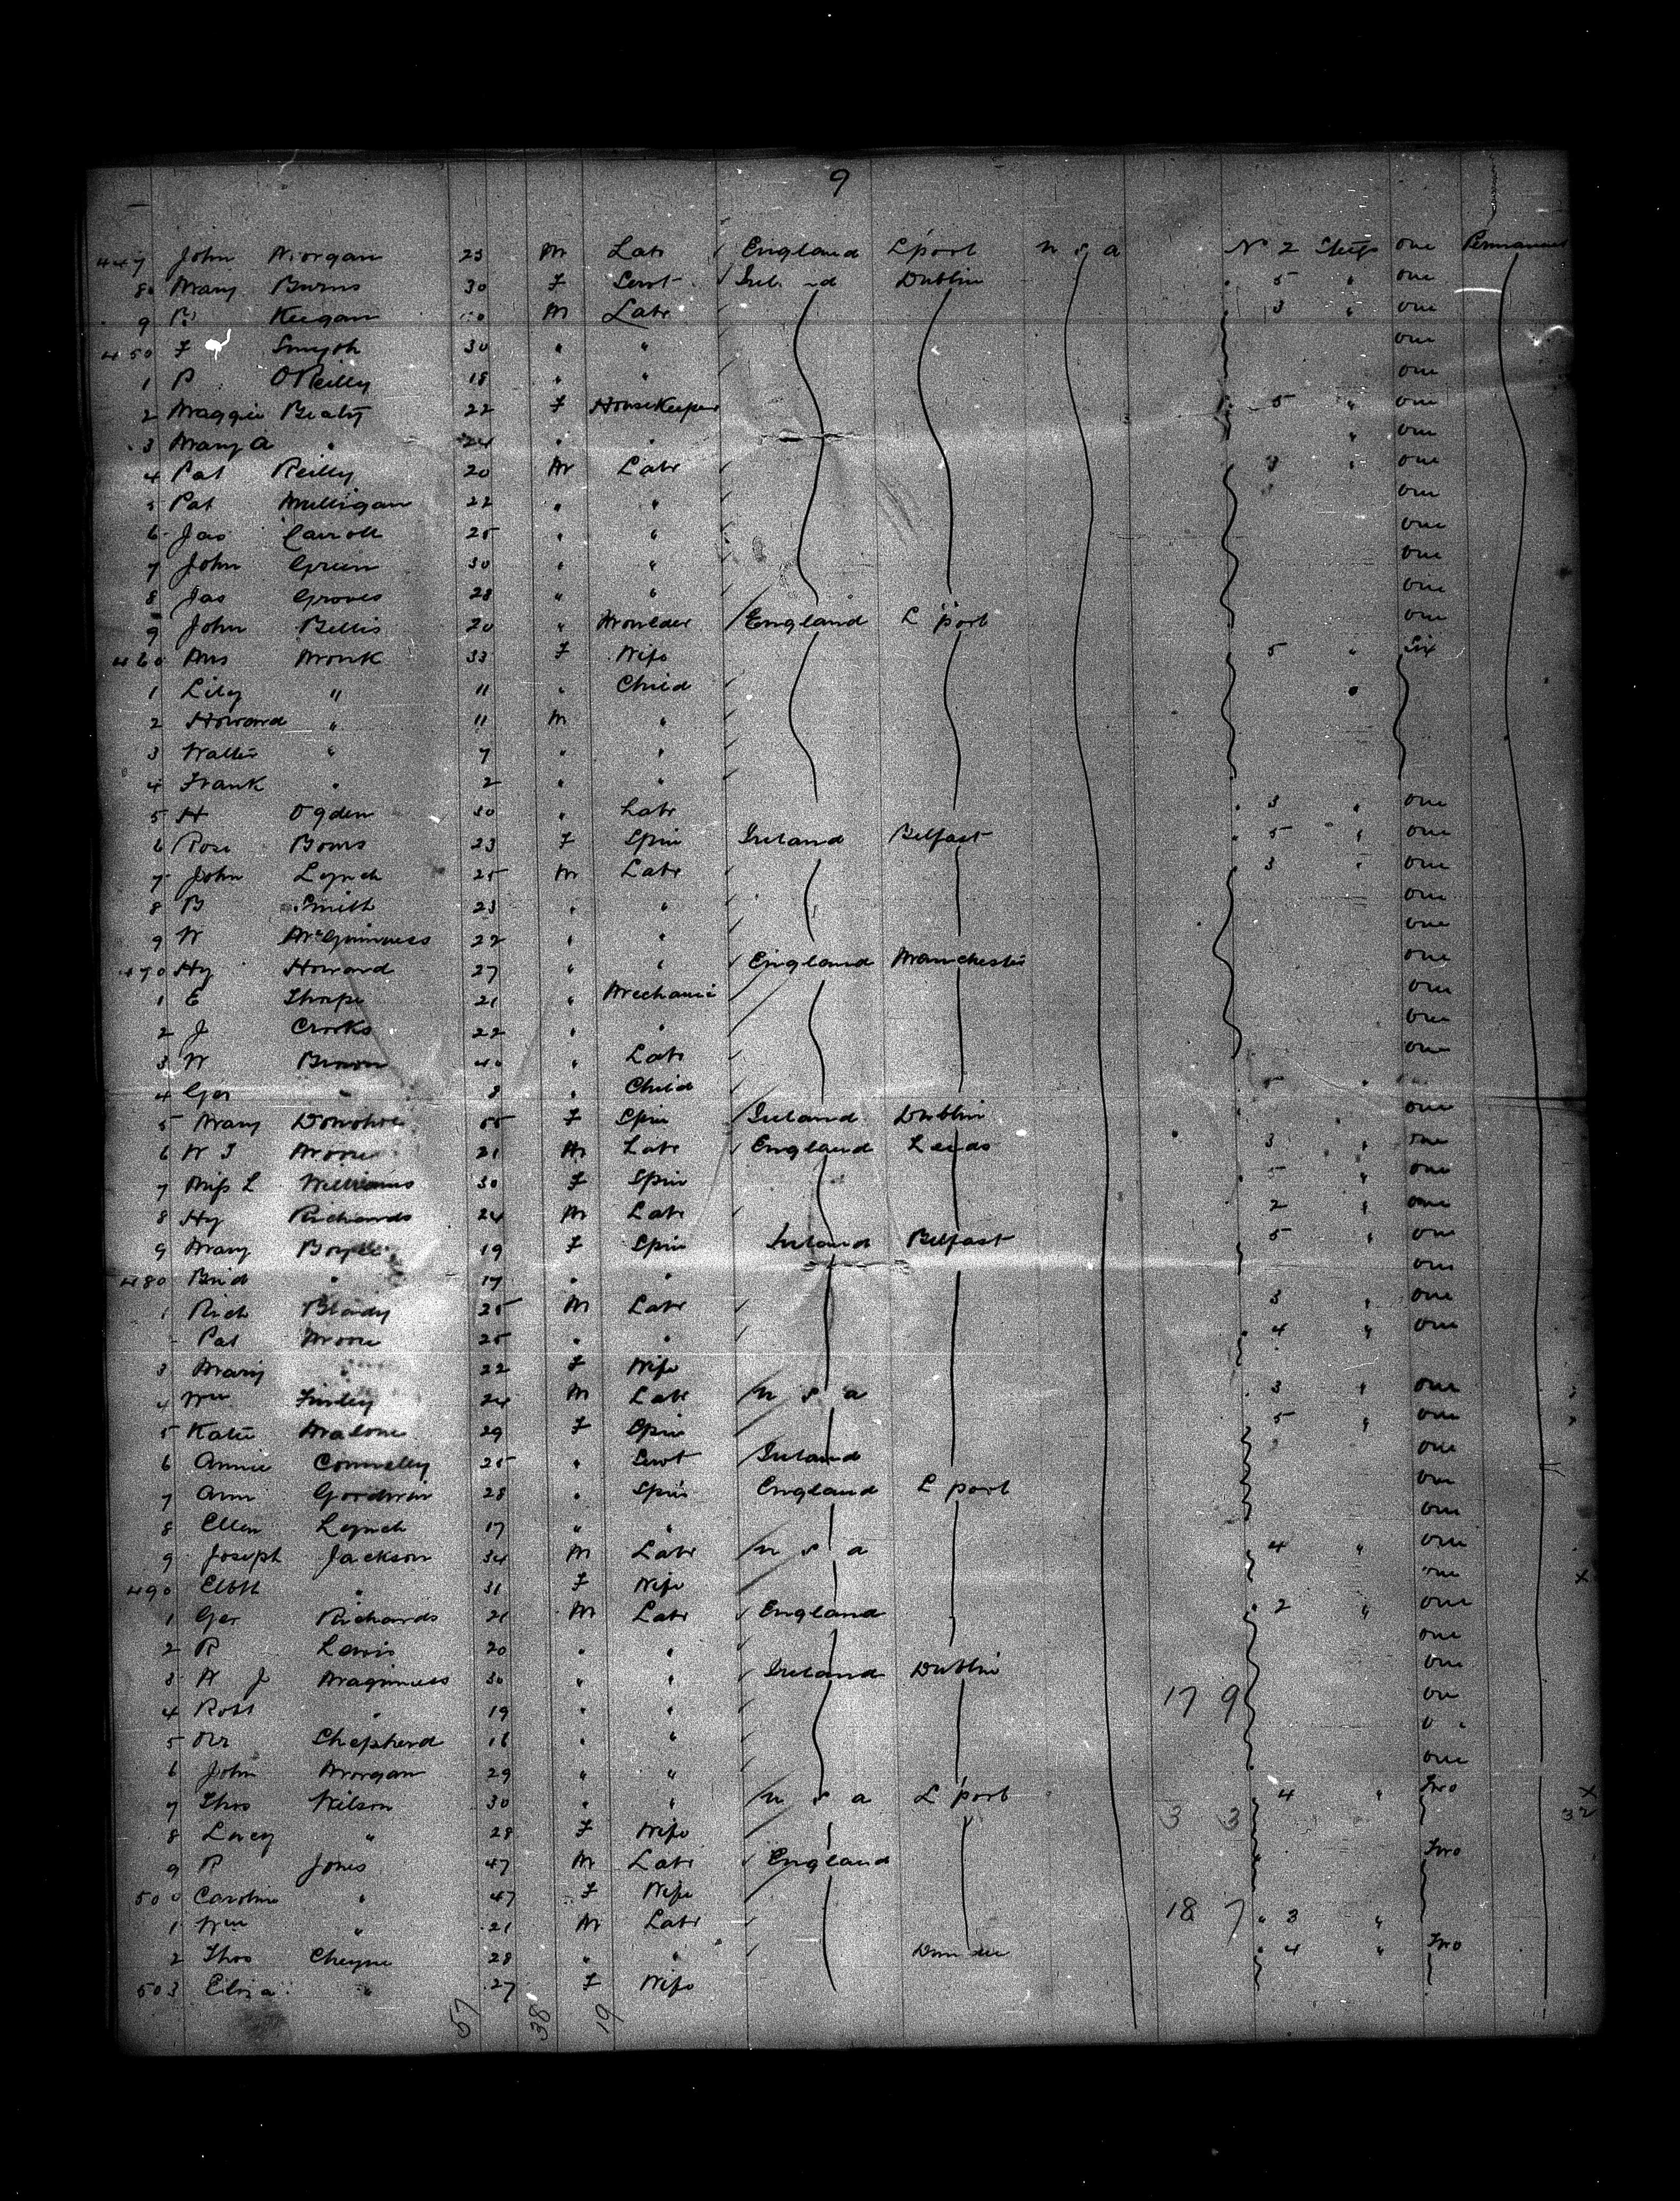 9
447 John Morgan 23 M Labr England L'pool U S A No 2 Steerage one Permanent
8 Mary Burns 30 F Servt Irel nd Dublin " 5 " one
9 Keegan M Labr " 3 " one
450 F Smyth 30 " " one
1 P O'Reilly 18 " " one
2 Maggie Beaty 22 F HouseKeeper " 5 " one
3 Mary A " 24 " " " one
4 Pat Reilly 20 M Labr 3 " one
5 Pat Mulligan 22 " " one
6 Jas Carroll 25 " " one
7 John Green 30 " " one
8 Jas Groves 28 " " one
9 John Bellis 20 " Moulder England L'pool one
460 Mrs Monk 33 F Wife 5 " Six
1 Lily " 11 " Child "
2 Howard " 11 M "
3 Walter " 7 " "
4 Frank " 2 " "
5 H Ogden 30 " Labr " 3 " one
6 Rose Bows 23 F Spin Ireland Belfast " 5 " one
7 John Lynch 25 M Labr 3 " one
8 B Smith 23 " " one
9 W McGuinness 22 " " one
470 Hy Howard 27 " " England Manchester one
1 E Thorpe 21 " Mechanic one
2 J Crooks 22 " " one
3 W Brown 40 " Labr one
4 Geo " 8 " Child
5 Mary Donohoe F Spin Ireland Dublin one
6 W J Moore 21 M Labr England Leeds 3 " one
7 Miss L Williams 30 F Spin 5 " one
8 Hy Richards 24 M Labr 2 " one
9 Mary Boyle 19 F Spin Ireland Belfast 5 " one
480 Brid " 17 " " one
1 Rich Blandy 25 M Labr 3 " one
Pat Moore 25 " " " 4 " one
3 Mary " 22 F Wife
4 Wm Finley 24 M Labr U S A 3 " one
5 Katie Malone 29 F Spin 5 " one
6 Annie Connelly 25 " Servt Ireland one
7 Ann Goodwin 28 " Spin England L'pool one
8 Ellen Lynch 17 " " one
9 Joseph Jackson 34 M Labr U S A 4 " one
490 Elbth " 31 F Wife one X
1 Geo Richards 21 M Labr England " 2 " one
2 R Lewis 20 " " one
3 J Maginness 30 " " Ireland Dublin one
4 Robt " 19 " " 17 9
5 Shepherd 16 " "
6 John Morgan 29 " " one
7 Thos Wilson 30 " " U S A L'pool 4 " Two X
8 Lucy " 28 F Wife 3 3 32
9 R Jones 47 M Labr England Two
500 Caroline " 47 F Wife
1 Wm " 21 M Labr 18 7 " 3 "
2 Thos Cheyne 28 " " Dundee " 4 " Two
503 Eliza " 27 F Wife
57 38 19